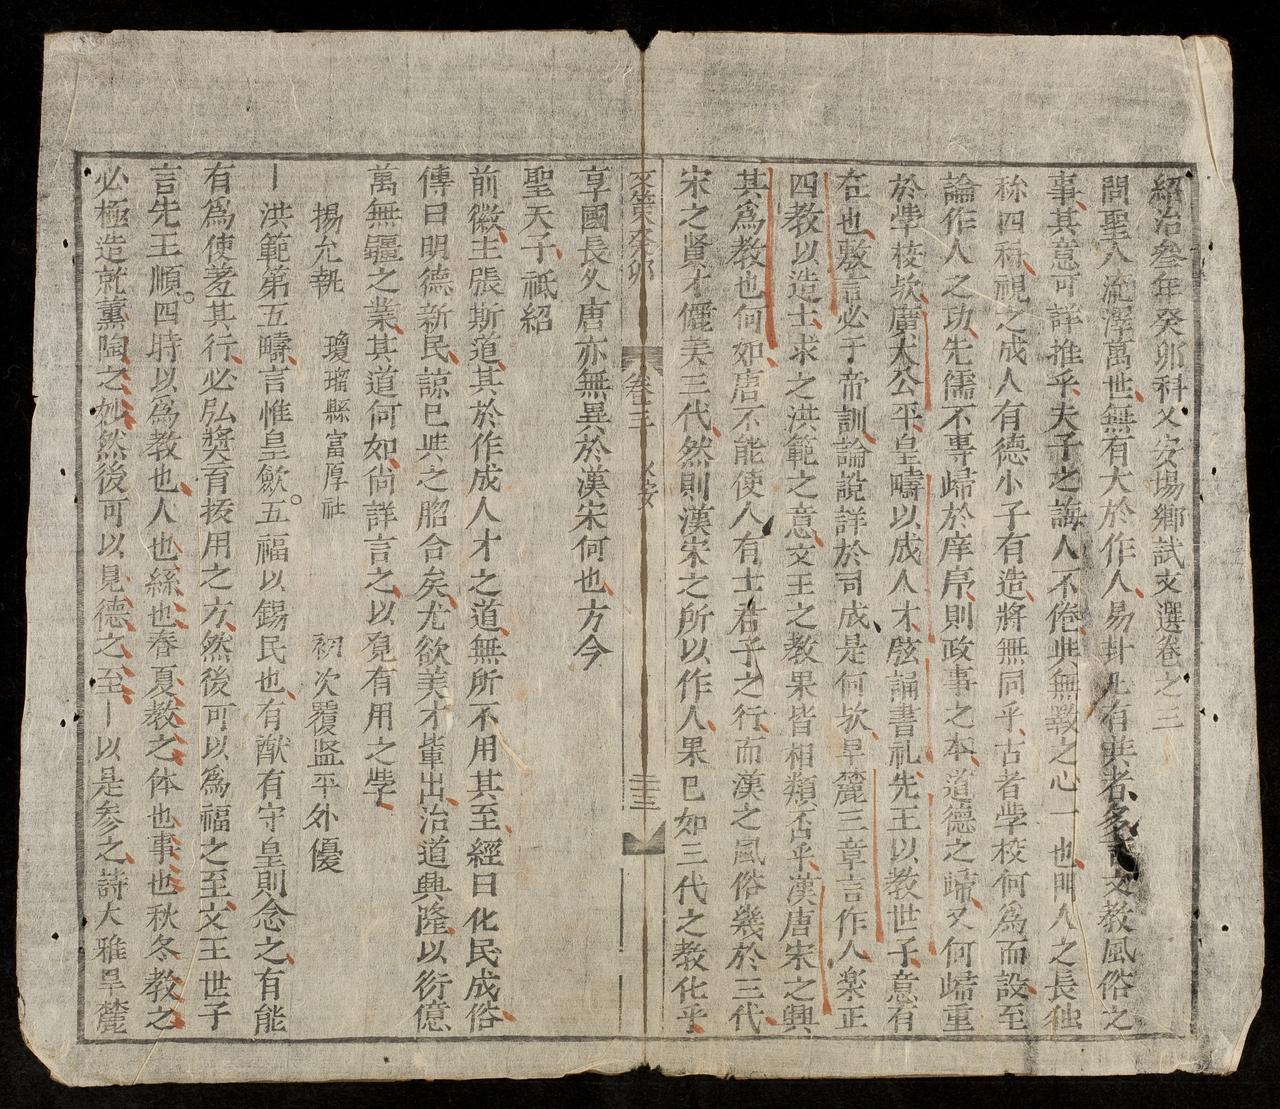 紹治叁年癸卯科乂安場鄉試文選卷之三
問聖人流澤萬世無有大於作人易卦凡有與者多文教風俗之
事其意可詳推乎夫子之誨人不倦與無斁之心一也聞人之長独
称四科視之成人有德小子有造將無同乎古者學校何為而設至
論作人之功先儒不專歸於庠序則政事之本道德之歸又何歸重
於學校欤廣大公平皇疇以成人才弦誦書礼先王以教世子意有
在也敷言必于帝訓論說詳於司成是何欤旱麓三章言作人楽正
四教以造士求之洪範之意文王之教果皆相類否乎漢唐宋之興
其為教也何如唐不能使人有士君子之行而漢之風俗幾於三代
宋之賢才儷美三代然則漢宋之所以作人果已如三代之教化乎
文策癸卯 卷三 乂安 三
享國長久唐亦無異於漢宋何也方今
聖天子祗紹
前徽主張斯道其於作成人才之道無所不用其至經曰化民成俗
傳曰明德新民諒已與之脗合矣尤欲美才輩出治道興隆以衍億
萬無疆之業其道何如尚詳言之以覓有用之學
揚允執 瓊瑠縣富厚社 初次覆监平外優
一洪範第五疇言惟皇歛五福以錫民也有猷有守皇則念之有能
有為使羞其行必弘奬育拔用之方然後可以為福之至文王世子
言先王順四時以為教也人也絲也春夏教之体也事也秋冬教之
必極造就薰陶之妙然後可以見德之至一以是参之詩大雅旱麓